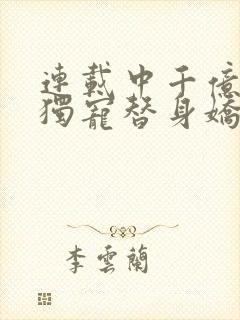 連載中千億
獨寵替身嬌
李雲蘭